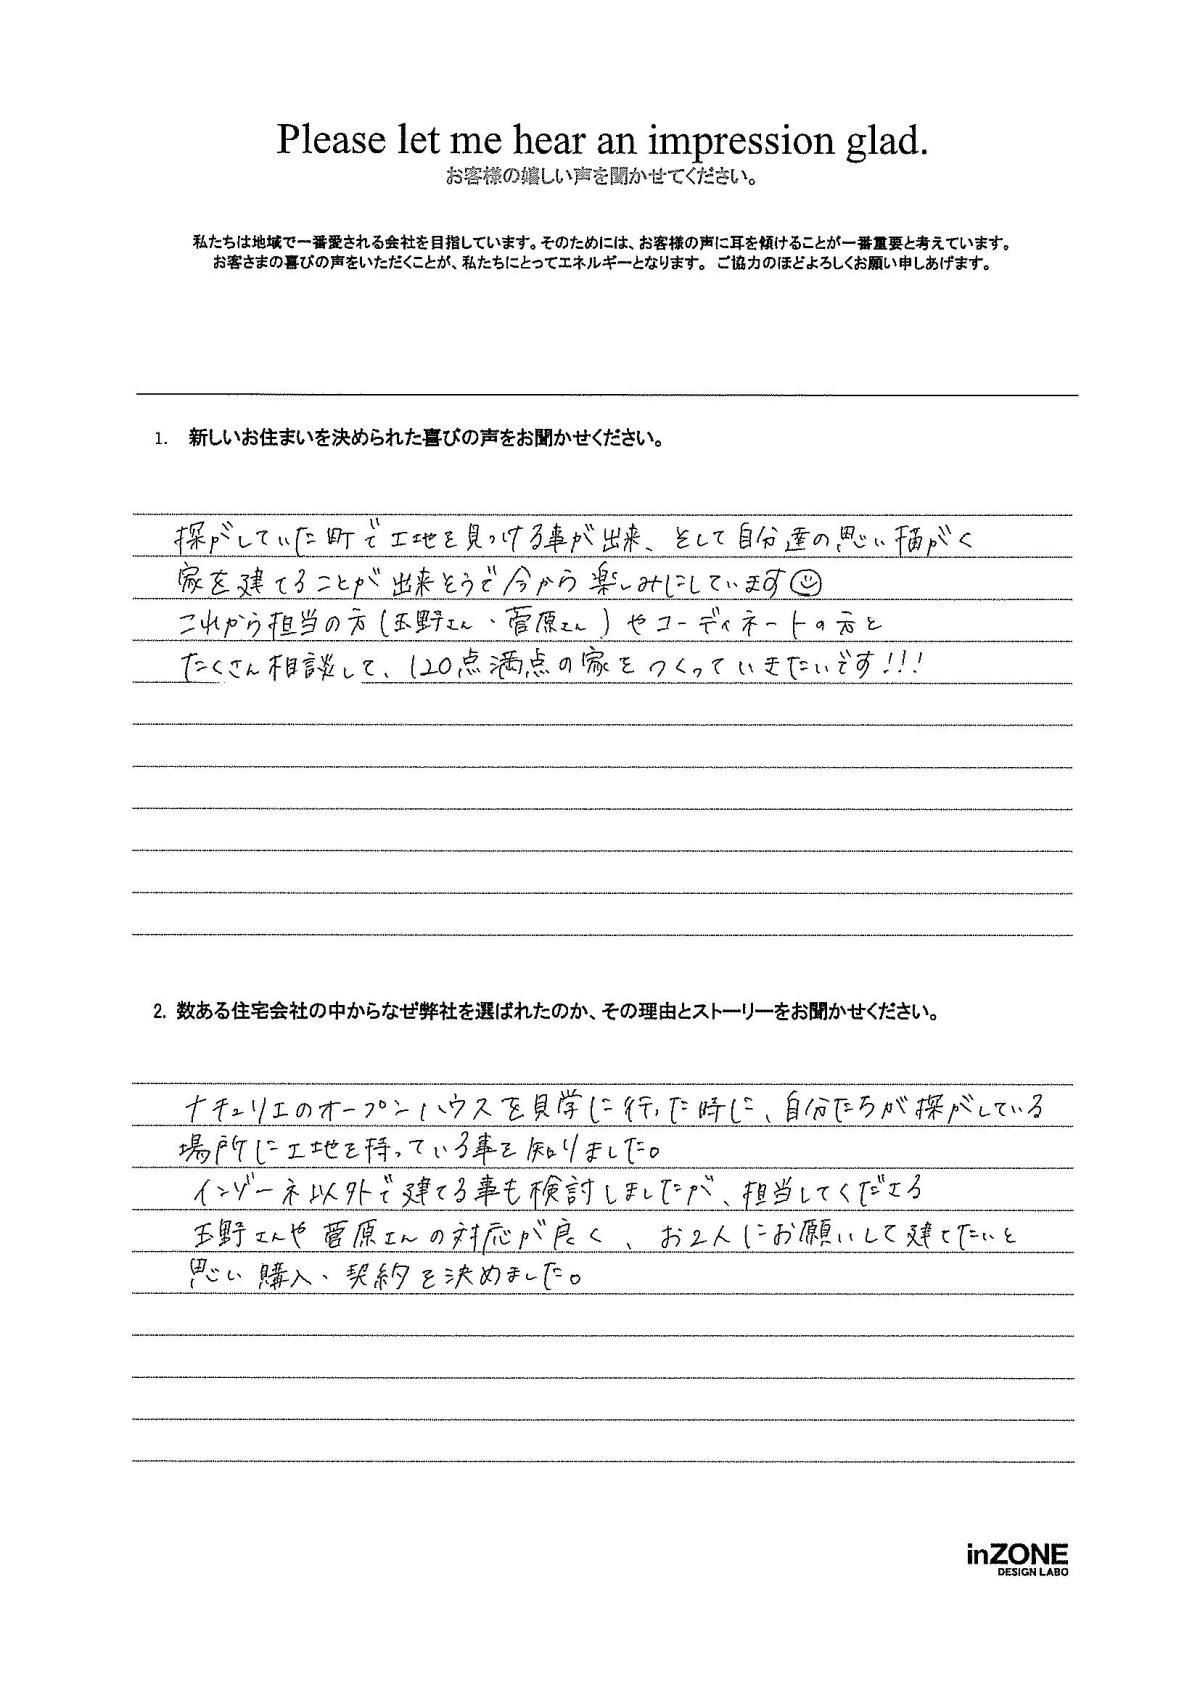 Please let me hear an impression glad.
お客様の嬉しい声を聞かせてください。
私たちは地域で一番愛される会社を目指しています。そのためには、お客様の声に耳を傾けることが一番重要と考えています。
お客さまの喜びの声をいただくことが、私たちにとってエネルギーとなります。ご協力のほどよろしくお願い申しあげます。
1. 新しいお住まいを決められた喜びの声をお聞かせください。
探がしていた町で土地を見つける事が出来、そして自分達の思い描がく
家を建てることが出来そうで今から楽しみにしています☺
これから担当の方(玉野さん・菅原さん)やコーディネートの方と
たくさん相談して、120点満点の家をつくっていきたいです!!!
2. 数ある住宅会社の中からなぜ弊社を選ばれたのか、その理由とストーリーをお聞かせください。
ナチュリエのオープンハウスを見学に行った時に、自分たちが探がしている
場所に土地を持っている事を知りました。
インゾーネ以外で建てる事も検討しましたが、担当してくださる
玉野さんや菅原さんの対応が良く、お2人にお願いして建てたいと
思い購入・契約を決めました。
inZONE
DESIGN LABO